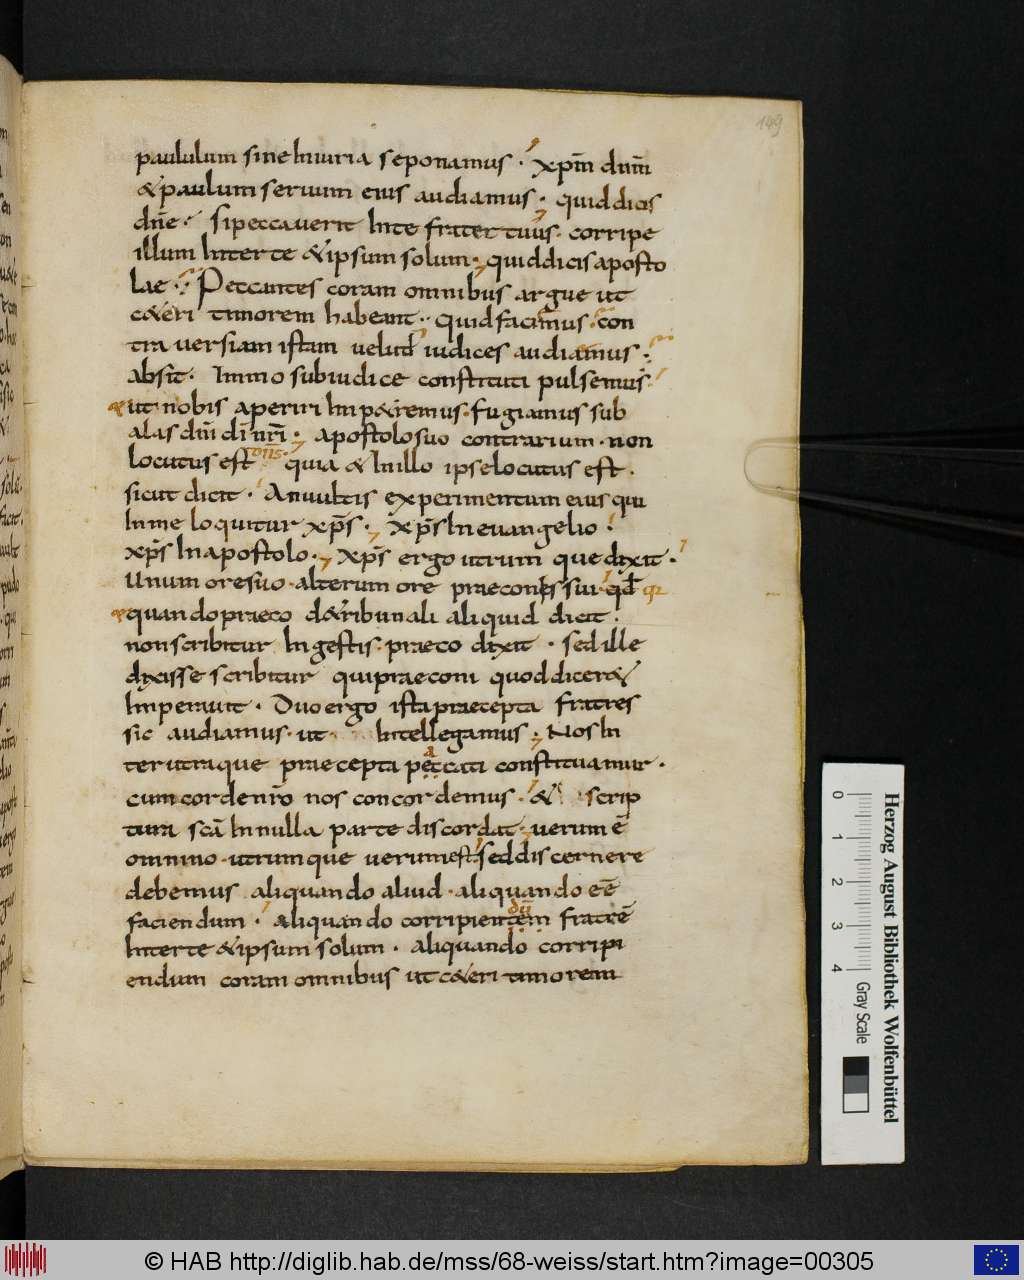 149
paululum sine iniuria seponamus · xp̄m dn̄m
& paulum seruum eius audiamus · quid dicis
dn̄e · si peccauerit in te frater tuus · corripe
illum inter te & ipsum solum · quid dicis aposto
lae · Peccantes coram omnibus argue ut
c&eri timorem habeant · quid facimus · con
trauersiam istam uelud iudices audiamus ·
absit · Immo sub iudice constituti pulsemus
ut nobis aperiri imp&remus · fugiamus sub
alas dn̄i dī nr̄i · apostolo suo contrarium · non
locutus est quia & in illo ipse locutus est ·
sicut dicit · An uultis experimentum eius qui
in me loquitur xp̄s · xp̄s in euangelio ·
xp̄s in apostolo · xp̄s ergo utrumque dixit ·
Unum ore suo · alterum ore praeconis sui
quando praeco d& tribunali aliquid dicit ·
non scribitur in gestis · praeco dixit · sed ille
dixisse scribitur qui praeconi quod dicer&
imperauit · Duo ergo ista praecepta fratres
sic audiamus · ut intellegamus · Nos in
ter utraque praecepta peccati constituamur ·
cum corde nr̄o nos concordemus · & scrip
tura sc̄a in nulla parte discordat · uerum ē
omnino · utrumque uerum est · sed discernere
debemus aliquando aliud · aliquando eē
faciendum · aliquando corripientem fratrē
inter te & ipsum solum · aliquando corripi
endum coram omnibus ut c&eri timorem
0 1 2 3 4
Gray Scale
Herzog August Bibliothek Wolfenbüttel
© HAB http://diglib.hab.de/mss/68-weiss/start.htm?image=00305